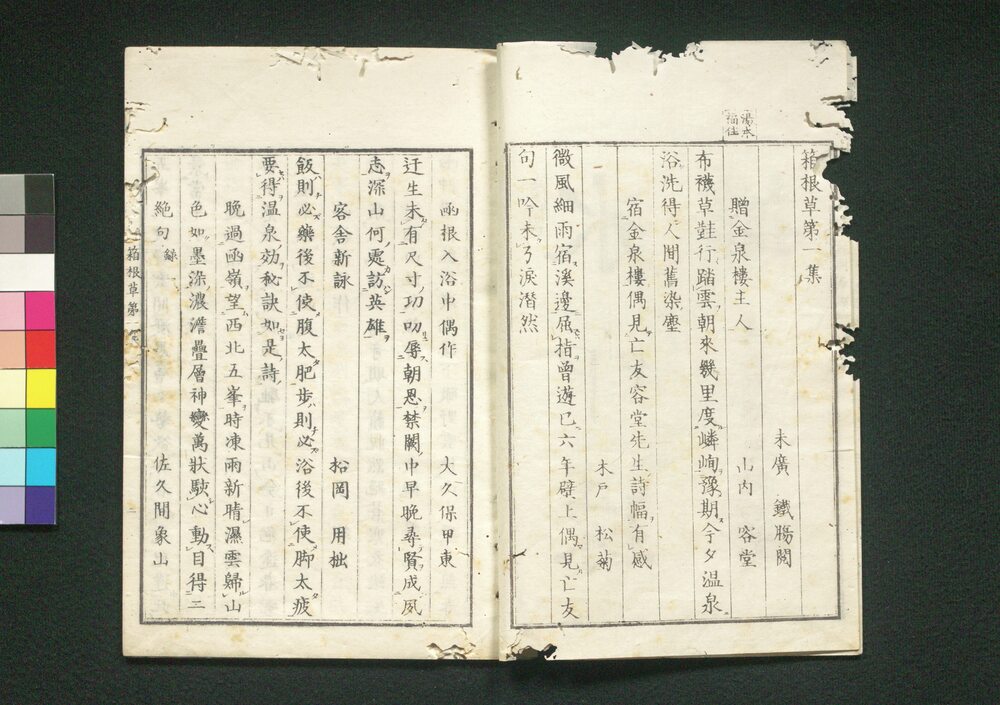 湯本
福住
箱根草第一集
末廣 鐵膓閲
贈金泉樓主人 山内 容堂
布襪草鞋行踏雲朝來幾里度嶙峋豫期今夕温泉
浴洗得人間舊染塵
宿金泉樓偶見亡友容堂先生詩幅有感
木戸 松菊
微風細雨宿溪邊屈指曾遊已六年壁上偶見亡友
句一吟未了淚潸然
函根入浴中偶作 大久保甲東
迂生未有尺寸功叨辱朝恩禁闕中早晩尋賢成夙
志深山何處訪英雄
客舎新詠 松岡 用拙
飯則必樂後不使腹太肥歩則必浴後不使脚太疲
要得温泉効秘訣如是詩
晩過函嶺望西北五峯時凍雨新晴濕雲歸山
色如墨染濃澹疊層神變萬狀駭心動目得二
絶句録一 佐久間象山
箱根草第一